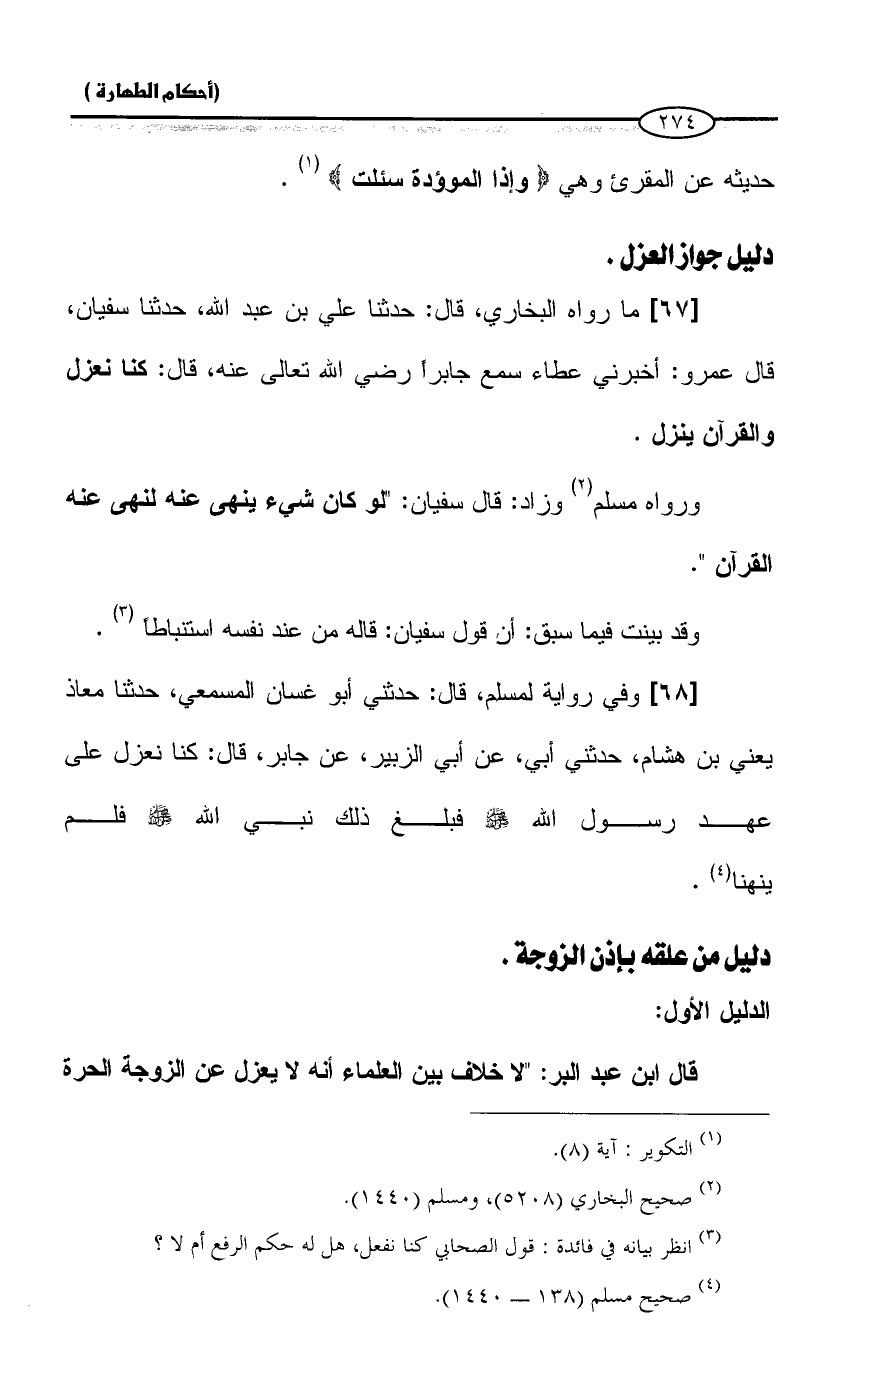 (أحكام الطهارة)
٢٧٤
حديثه عن المقرئ وهي ﴿ وإذا الموؤدة سئلت ﴾ (١) .
دليل جواز العزل .
[٦٧] ما رواه البخاري، قال: حدثنا علي بن عبد الله، حدثنا سفيان،
قال عمرو: أخبرني عطاء سمع جابراً رضي الله تعالى عنه، قال: كنا نعزل
والقرآن ينزل .
ورواه مسلم(٢) وزاد: قال سفيان: "لو كان شيء ينهى عنه لنهى عنه
القرآن ".
وقد بينت فيما سبق: أن قول سفيان: قاله من عند نفسه استنباطاً (٣) .
[٦٨] وفي رواية لمسلم، قال: حدثني أبو غسان المسمعي، حدثنا معاذ
يعني بن هشام، حدثني أبي، عن أبي الزبير، عن جابر، قال: كنا نعزل على
عهد رسول الله ﷺ فبلغ ذلك نبي الله ﷺ فلم
ينهنا(٤) .
دليل من علقه بإذن الزوجة .
الدليل الأول:
قال ابن عبد البر: "لا خلاف بين العلماء أنه لا يعزل عن الزوجة الحرة
(١) التكوير : آية (٨).
(٢) صحيح البخاري (٥٢٠٨)، ومسلم (١٤٤٠).
(٣) انظر بيانه في فائدة : قول الصحابي كنا نفعل، هل له حكم الرفع أم لا ؟
(٤) صحيح مسلم (١٣٨ – ١٤٤٠).